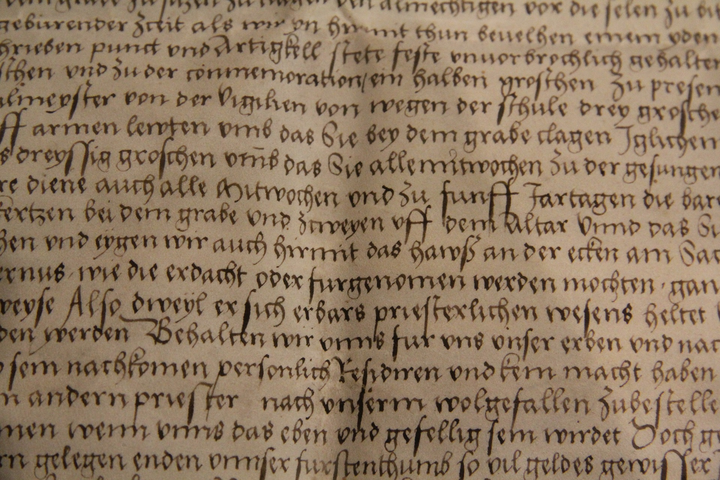 almechtigen vor die selen zu
geburender zceit als wir yn hirmit thun bevelhen einem yden
hrieben punct und Artigkell stete feste unvorbrochlich gehalten
schen und zu der commemoration ein halben groschen zu presen
ulmeyster von der vigilien von wegen der schule drey grosche
ff armen lewten umb das Sie bey dem grabe clagen Iglichem
s dreyssig groschen umb das Sie alle mitwochen zu der gesungen
re diene auch alle Mitwochen und zu funff Jartagen die bare
kertzen bei dem grabe und zcweyen uff dem Altar unnd das Si
hen und eygen wir auch hirmit das hawß an der ecken am Sac
ernus wie die erdacht oder furgenomen werden mochten gan
weyse Also dweyl er sich erbars priesterlichen wesens heltet
den werden Behalten wir unns fur uns unser erben und nac
sein nachkomen personlich Residiren und kein macht haben
n andern priester nach unserm wolgefallen zubestelle
men wenn unns das eben und gefellig sein wirdet Doch ge
rn gelegen enden unnser furstenthumb so vil geldes gewisser